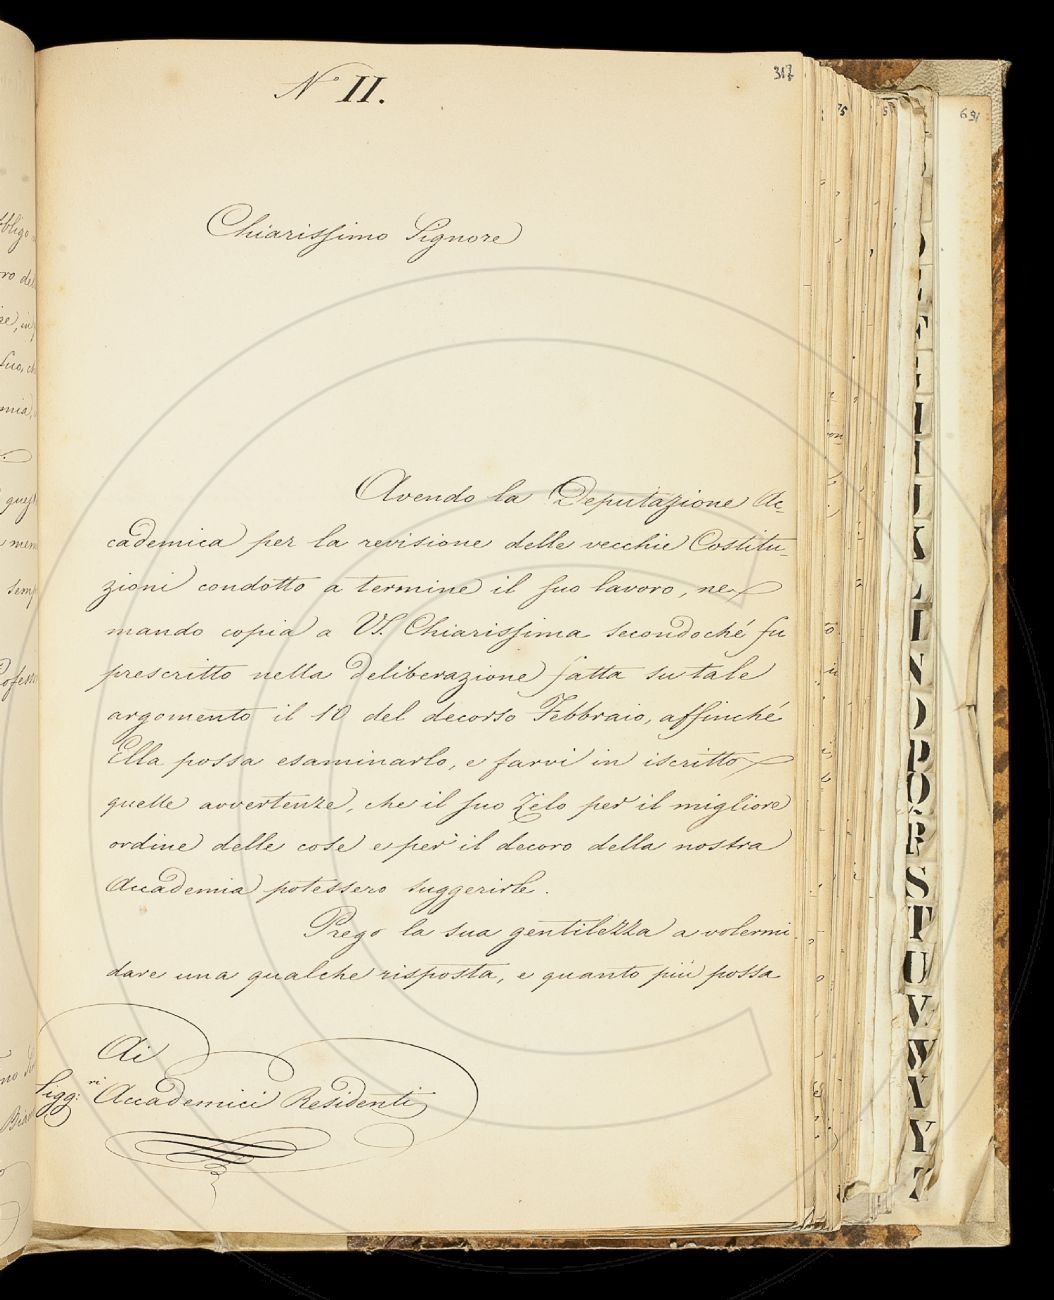 317
N° II.
Chiarissimo Signore
Avendo la Deputazione Ac-
cademica per la revisione delle vecchie Costitu-
zioni condotto a termine il suo lavoro, ne
mando copia a VS. Chiarissima secondoché fu
prescritto nella deliberazione fatta su tale
argomento il 10 del decorso Febbraio, affinché
Ella possa esaminarlo, e farvi in iscritto
quelle avvertenze, che il suo zelo per il migliore
ordine delle cose e per il decoro della nostra
Accademia potessero suggerirle.
Prego la sua gentilezza a volermi
dare una qualche risposta, e quanto più possa
Ai
Sigg:ri Accademici Residenti
691
D
E
F
G
H
I
J
K
L
M
N
O
P
Q
R
S
T
U
V
W
X
Y
Z